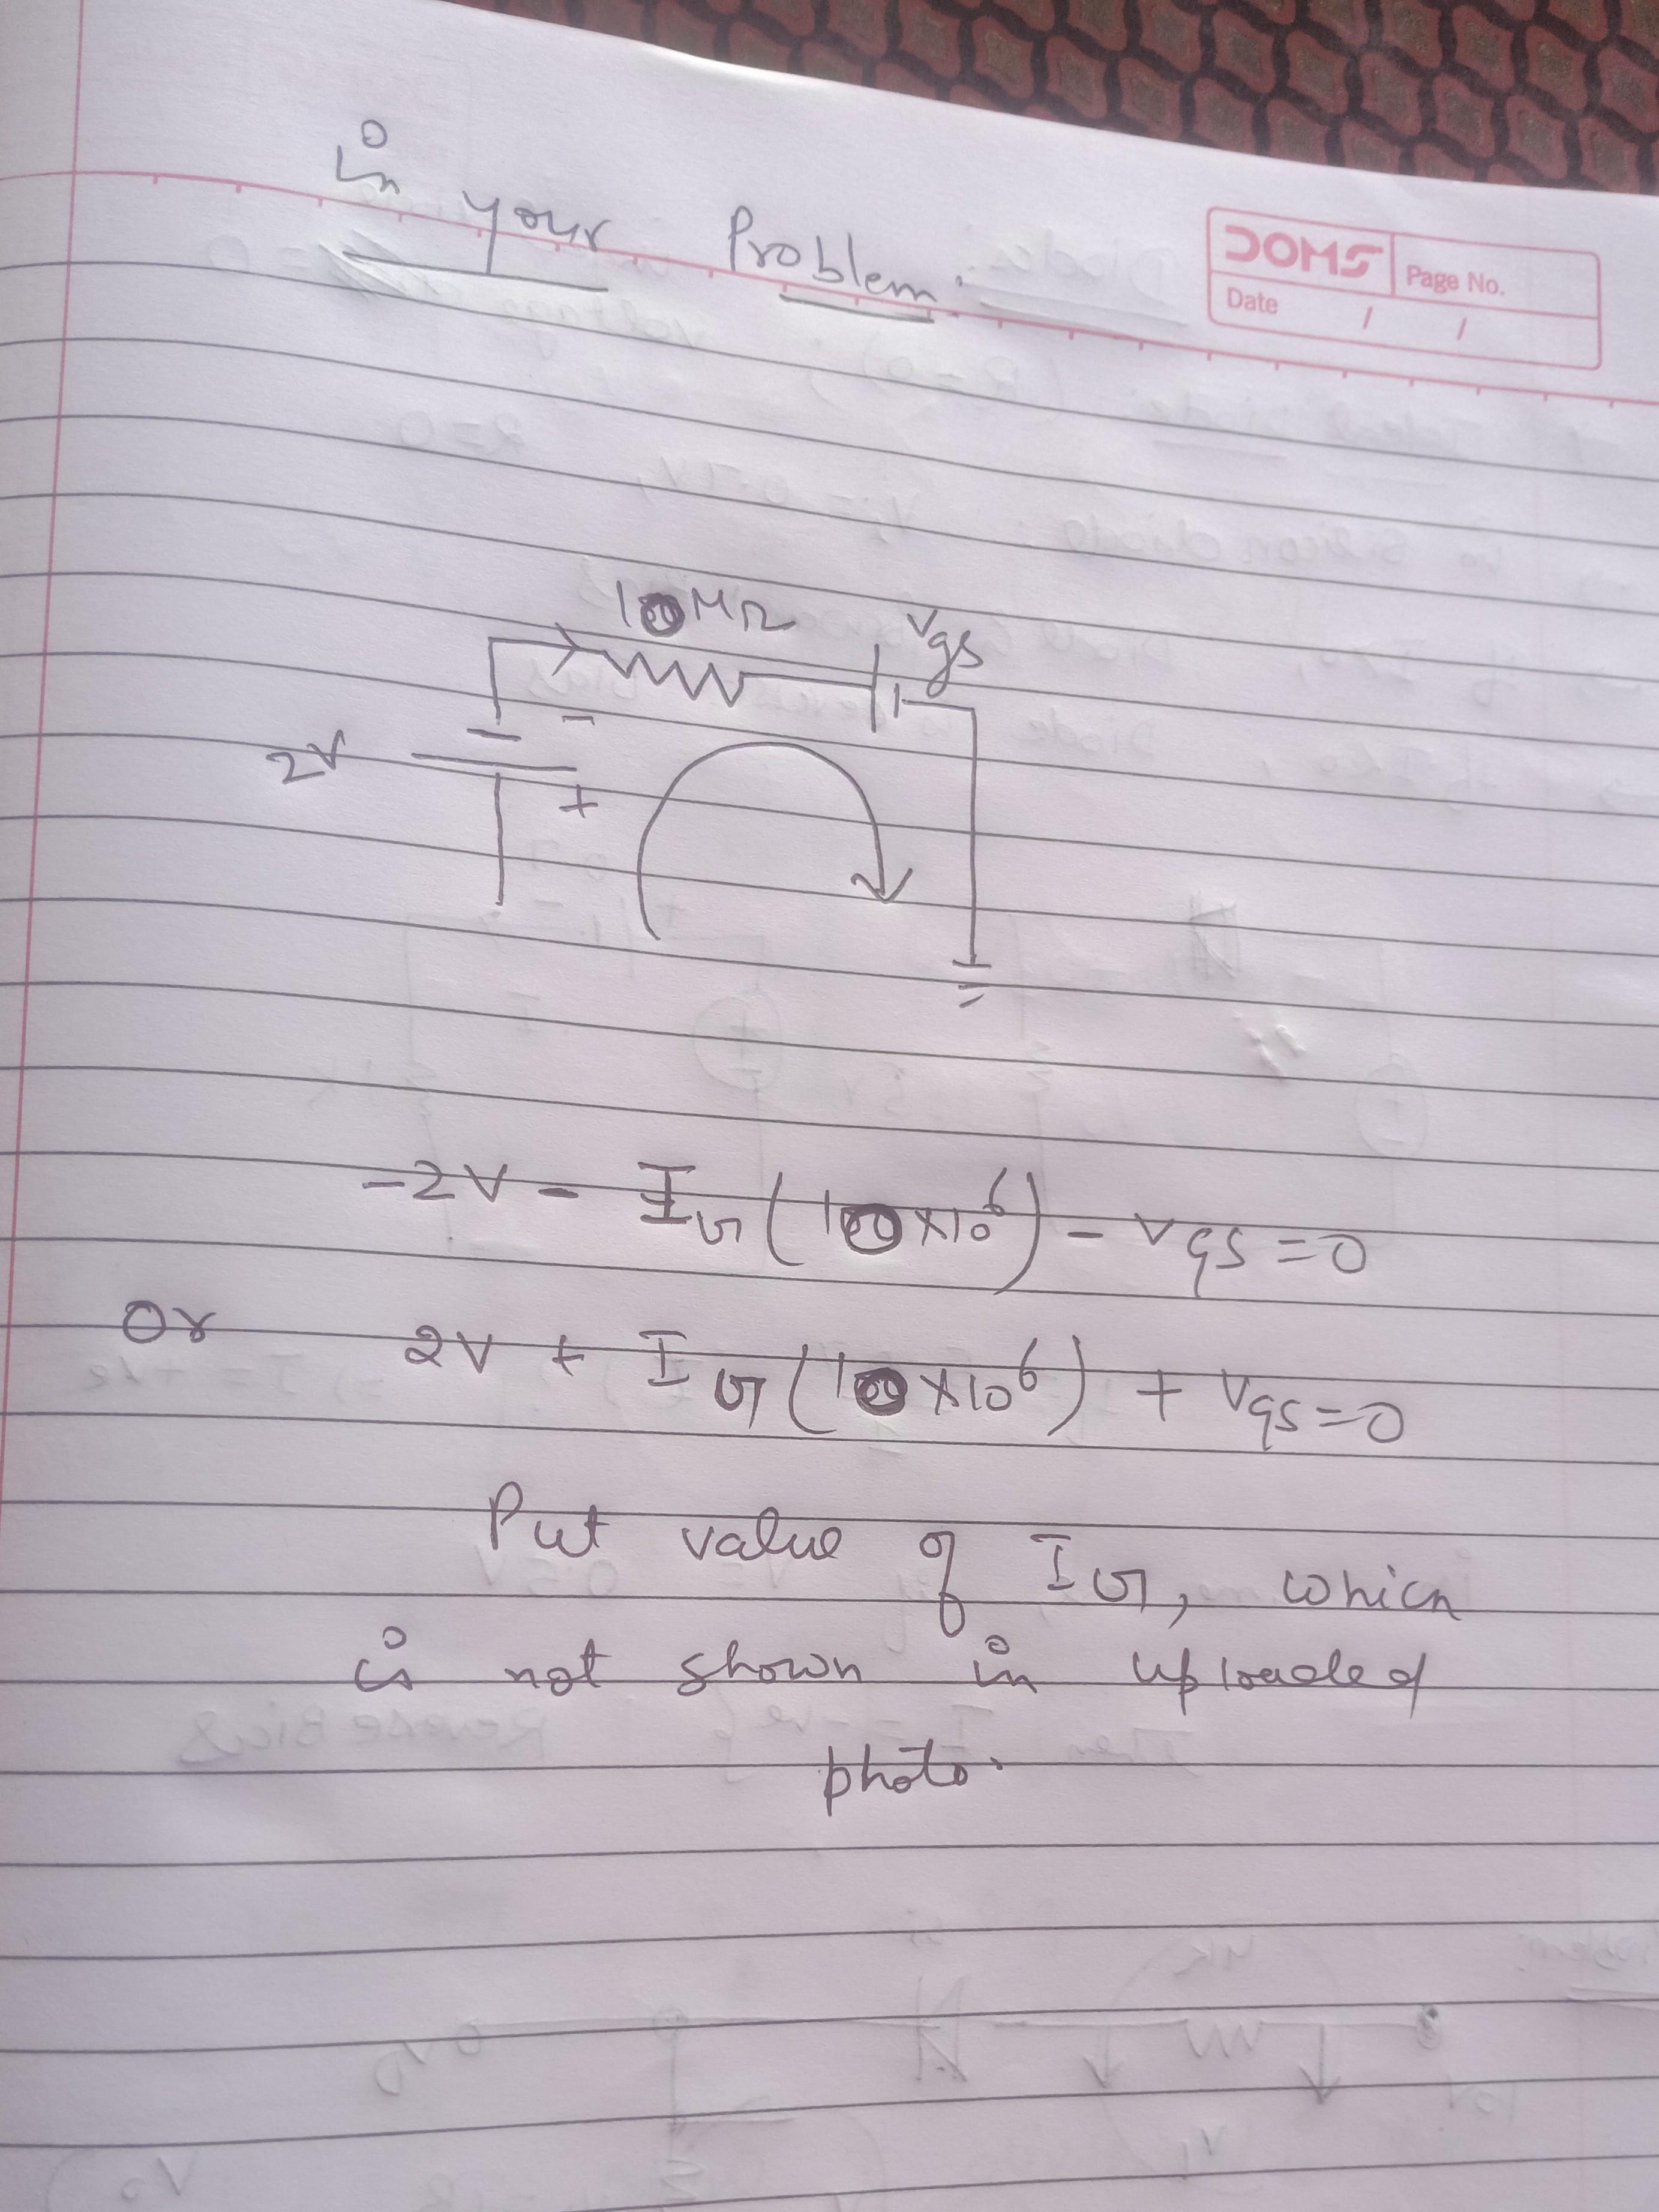 in your Problem.
DOMS
Page No.
Date / /
10MΩ
Vgs
2V
-
+
-2V - IG(10×10⁶) - VGS = 0
Or 2V + IG(10×10⁶) + VGS = 0
Put value of IG, which
is not shown in uploaded
photo.